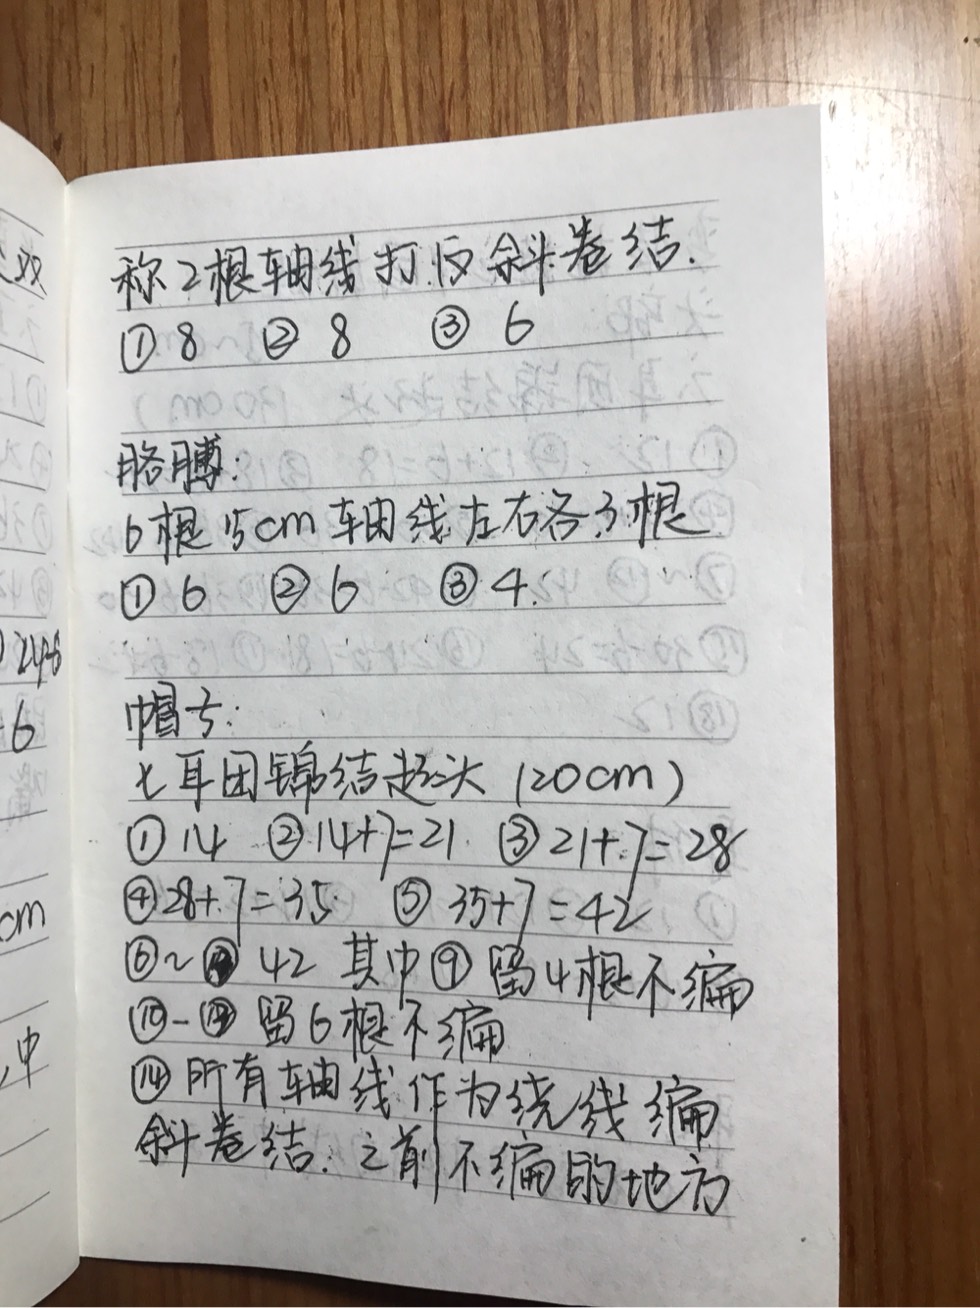 双
24-6
6
cm
中
称2根轴线打反斜卷结.
① 8 ② 8 ③ 6
胳膊:
6根15cm轴线左右各3根
① 6 ② 6 ③ 4.
帽子:
七耳团锦结起头 (20cm)
① 14 ② 14+7=21 ③ 21+7=28
④ 28+7=35 ⑤ 35+7=42
⑥~ 42 其中⑨ 留4根不编
⑩- 留6根不编
⑭ 所有轴线作为绕线编
斜卷结. 之前不编的地方